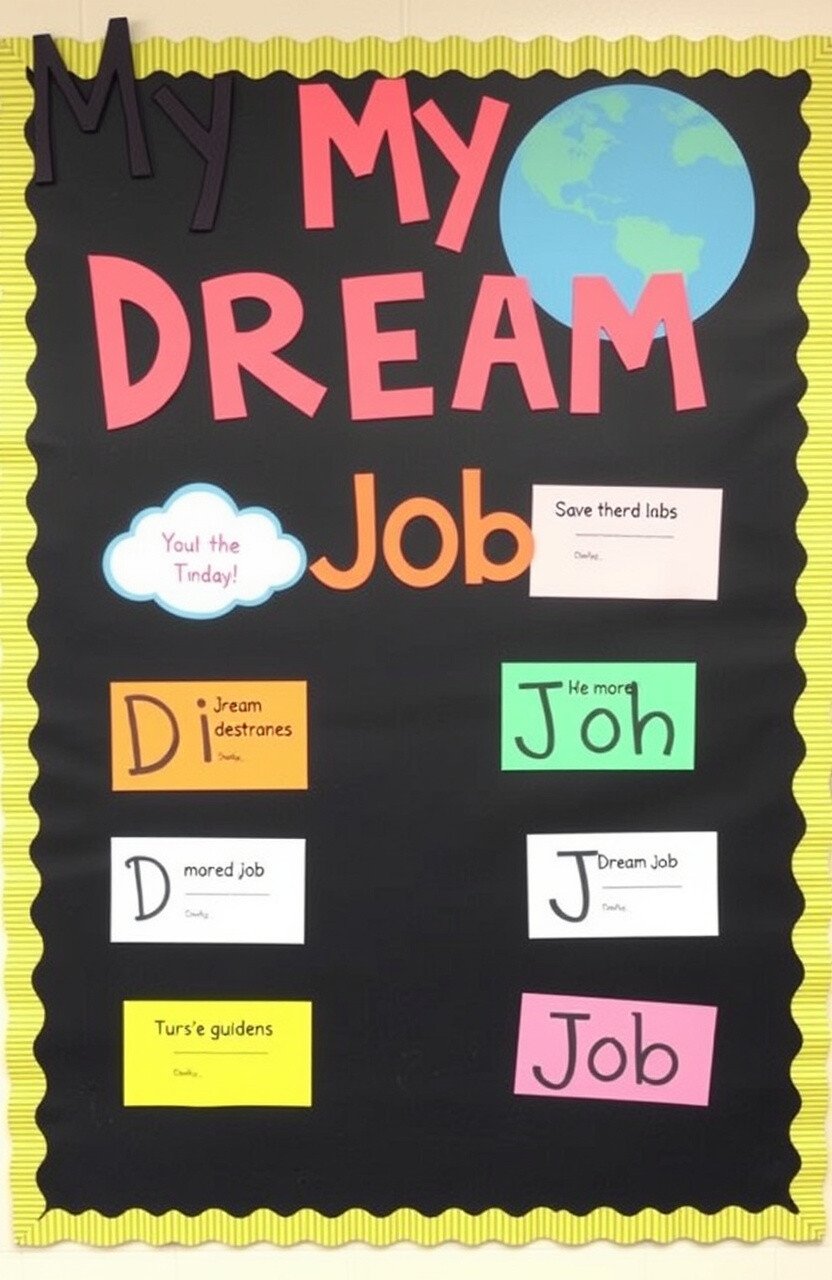 My My
DREAM
Job
Youl the
Tinday!
Save therd labs
Di
Jream
destranes
He more
Joh
D
mored job
J
Dream Job
Turs'e guldens
Job